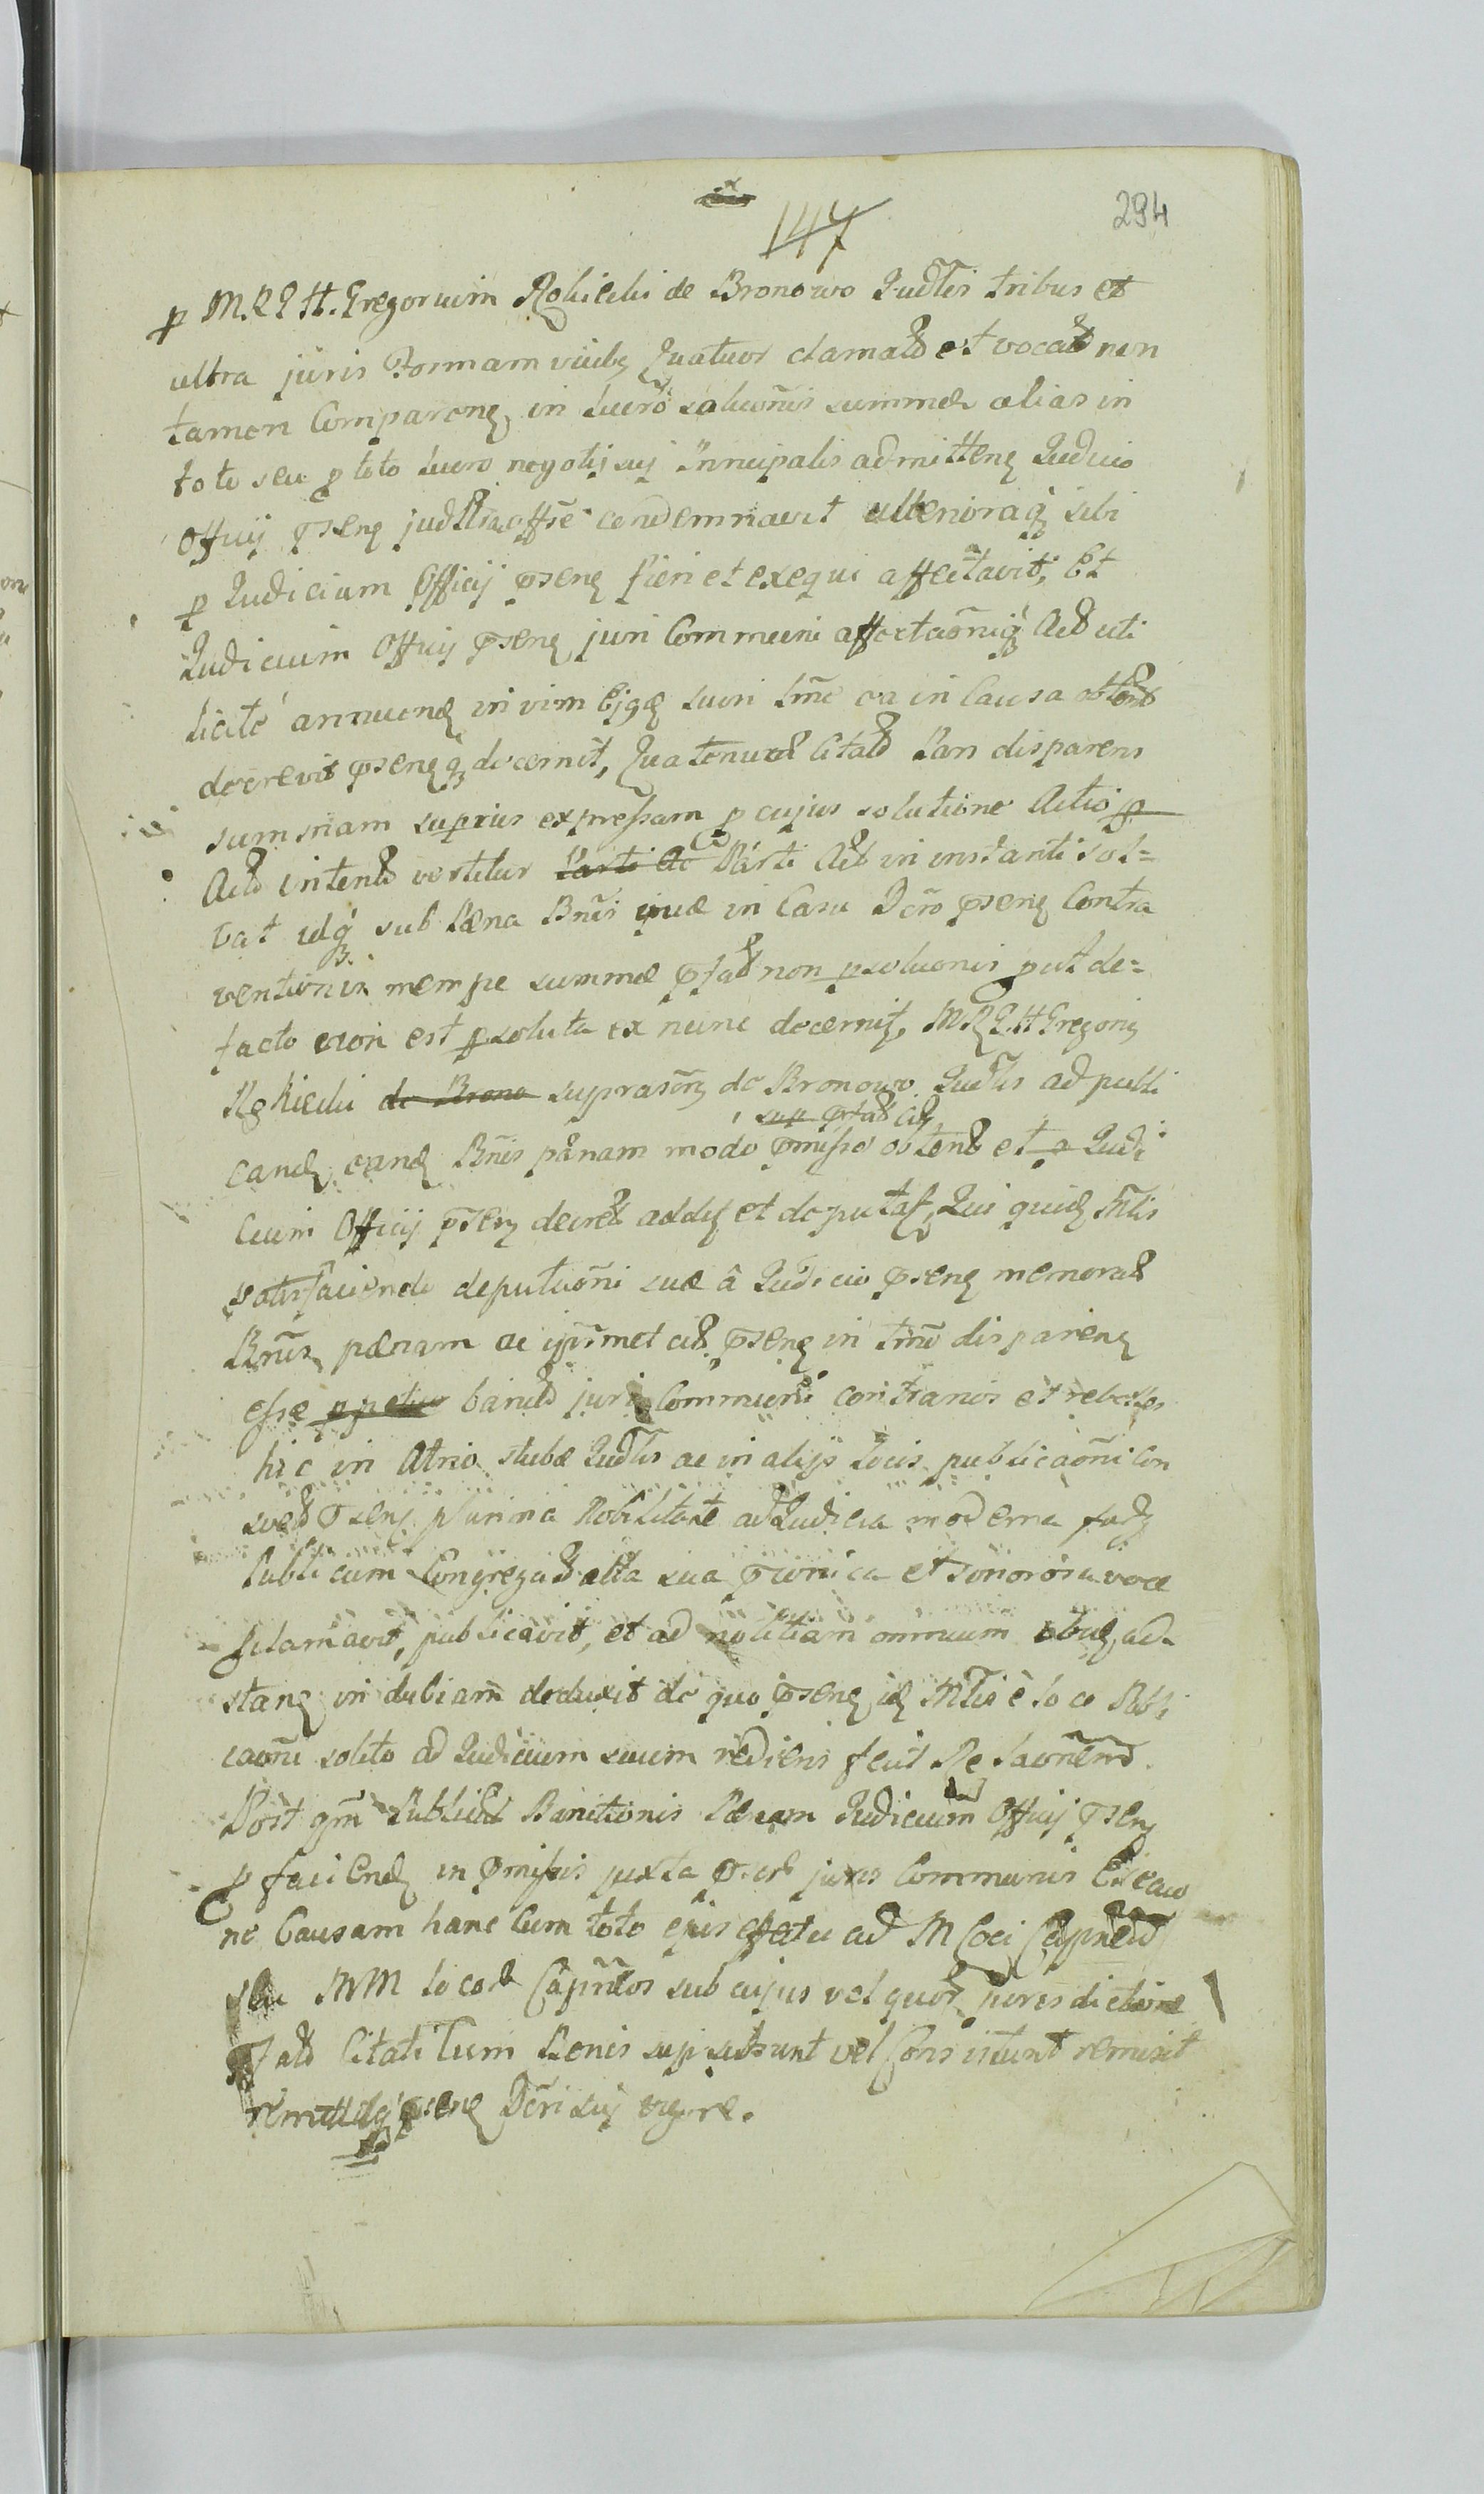 147
294
p M. R. G. H. Gregorium Rokicki de Bronowo Judtis tribus et
ultra juris Formam vicibq Quatuor clamatt et vocatt non
tamen Comparenq in lucro soluconis summæ alias in
toto seu p toto lucro negotij suj Principalis admitteng Judicio
Officij pseng judtr offse condemnavit ulterioraq sibi
p Judicium Officij pseng fieri et exequi affectavit, Et
Judicium Officij pseng juri Communi affectaoniq Act uti
licite annueng in vim Ejqe lucri in Causa obtent
decrevit psengq decernit, Quatenus Citatt Pars disparens
summam superius expressam p cujus solutione Actio p
Actt intentt vertitur Parti Ac Parti Act in instanti sol=
vat idq sub Pæna Bnis quæ in Casu Dcro pseng Contra
ventionis nempe summæ pfatt non psoluonis put de=
facto non est psoluta ex nunc decernit, M R G H Gregorig
Rokicki de Brono suprascr de Bronowo Judtis ad publi
cand eand Bnis pænam modo pmisso ostent et a Judi
sup pfatt Citt
cium Officij pseng decret addit et deputat, Qui quid Mtis
satisfaciendo deputuoni suæ â Judicio pseng memoratt
Bnis pænam ac ipsmet citt pseng in tmno disparenq
esse ppetuo banitt juri Communi contrarios et rebelles
hic in Atrio stubæ Judtis ac in alijs locis publicaoni con
svet pseng plurima Nobilitate ad Judicia moderna fudg
Publicum Congregatt alta sua pconica et sonorosa voce
pclamavit, publicavit, et ad notitiam omnium ibig ad-
stang in dubiam deduxit de quo pseng id Mtis è loco Publi
caoni solito ad Judicium suum rediens fecit Relaonem.
Post qm Publicatt Banitionis Pænam Judicium Officij pseng
p faciend in pmissis juxta pscr juris Communis Execuo
ne Causam hanc Cum toto ejus effectu ad M loci Capneum
seu MM locor Capneos sub cujus vel quor jurisdictione
pfatt Citati Cum Bonis sup subsunt vel Consistunt remisit
remittitq pseng Dcri suj vigore.